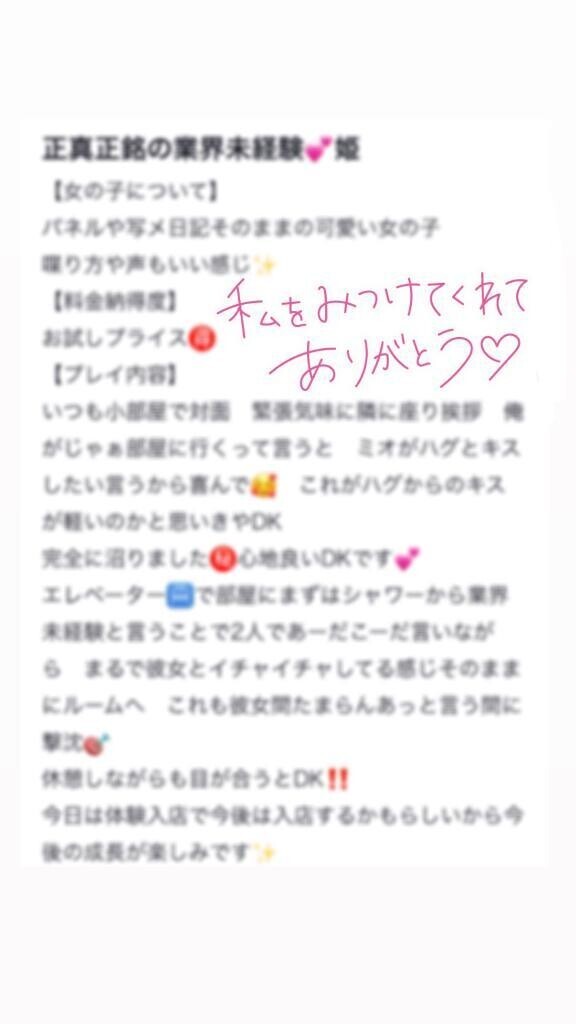 正真正銘の業界未経験💕姫
【女の子について】
パネルや写メ日記そのままの可愛い女の子
喋り方や声もいい感じ✨
【料金納得度】
お試しプライス🉐
【プレイ内容】
いつも小部屋で対面　緊張気味に隣に座り挨拶　俺
がじゃぁ部屋に行くって言うと　ミオがハグとキス
したい言うから喜んで🥰　これがハグからのキス
が軽いのかと思いきやDK
完全に沼りました㊙️心地良いDKです💕
エレベーター🚃で部屋にまずはシャワーから業界
未経験と言うことで2人であーだこーだ言いなが
ら　まるで彼女とイチャイチャしてる感じそのまま
にルームへ　これも彼女間たまらんあっと言う間に
撃沈🎯
休憩しながらも目が合うとDK‼️
今日は体験入店で今後は入店するかもらしいから今
後の成長が楽しみです✨
私をみつけてくれて
ありがとう♡